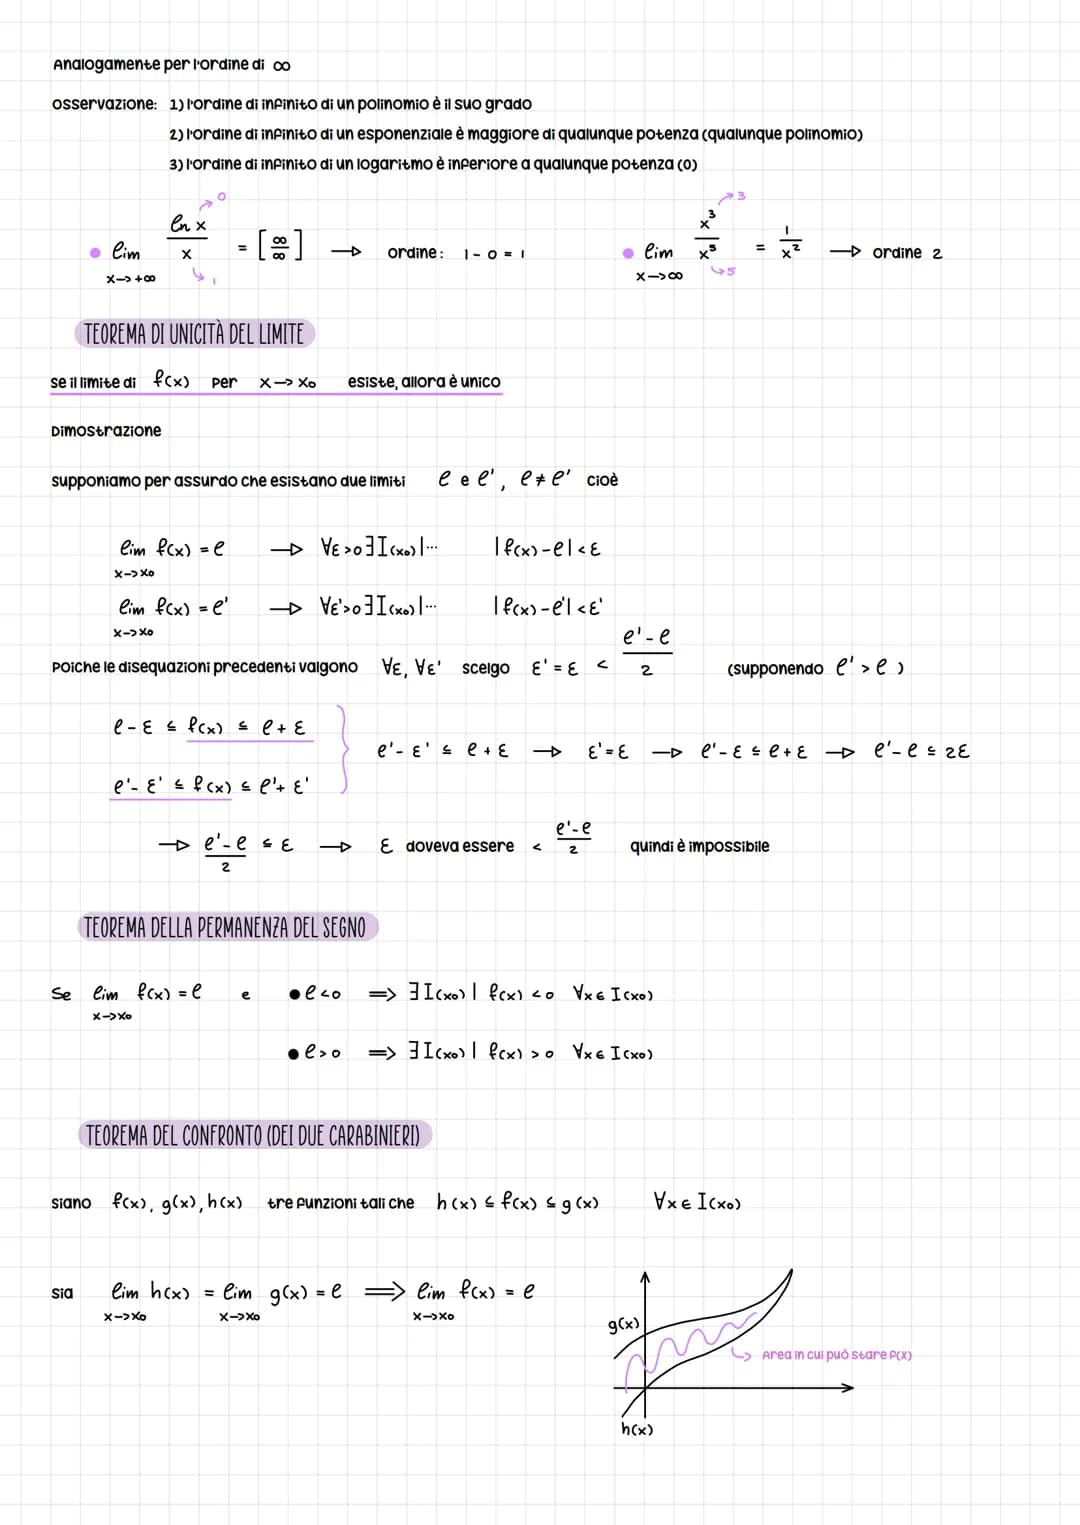 Analogamente per l'ordine di ∞
osservazione: 1) l'ordine di infinito di un polinomio è il suo grado
2) l'ordine di infinito di un esponenziale è maggiore di qualunque potenza (qualunque polinomio)
3) l'ordine di infinito di un logaritmo è inferiore a qualunque potenza (0)
• lim x->+∞ ln x / x = [∞/∞] → ordine: 1 - 0 = 1
0
1
• lim x->∞ x³/x⁵ = 1/x² → ordine 2
3
5
TEOREMA DI UNICITÀ DEL LIMITE
se il limite di f(x) per x -> x₀ esiste, allora è unico
Dimostrazione
supponiamo per assurdo che esistano due limiti l e l', l ≠ l' cioè
lim x->x₀ f(x) = l → ∀ε>0 ∃I(x₀)|... |f(x)-l|<ε
lim x->x₀ f(x) = l' → ∀ε'>0 ∃I(x₀)|... |f(x)-l'|<ε'
Poiche le disequazioni precedenti valgono ∀ε, ∀ε' scelgo ε' = ε < (l'-l)/2 (supponendo l' > l)
l - ε ≤ f(x) ≤ l + ε
l' - ε' ≤ f(x) ≤ l' + ε'
l' - ε' ≤ l + ε → ε' = ε → l' - ε ≤ l + ε → l' - l ≤ 2ε
→ (l'-l)/2 ≤ ε → ε doveva essere < (l'-l)/2 quindi è impossibile
TEOREMA DELLA PERMANENZA DEL SEGNO
Se lim x->x₀ f(x) = l e • l<0 => ∃I(x₀) | f(x) <0 ∀x∈I(x₀)
• l>0 => ∃I(x₀) | f(x) >0 ∀x∈I(x₀)
TEOREMA DEL CONFRONTO (DEI DUE CARABINIERI)
siano f(x), g(x), h(x) tre funzioni tali che h(x) ≤ f(x) ≤ g(x) ∀x∈I(x₀)
sia lim x->x₀ h(x) = lim x->x₀ g(x) = l => lim x->x₀ f(x) = l
g(x)
Area in cui può stare f(x)
h(x)